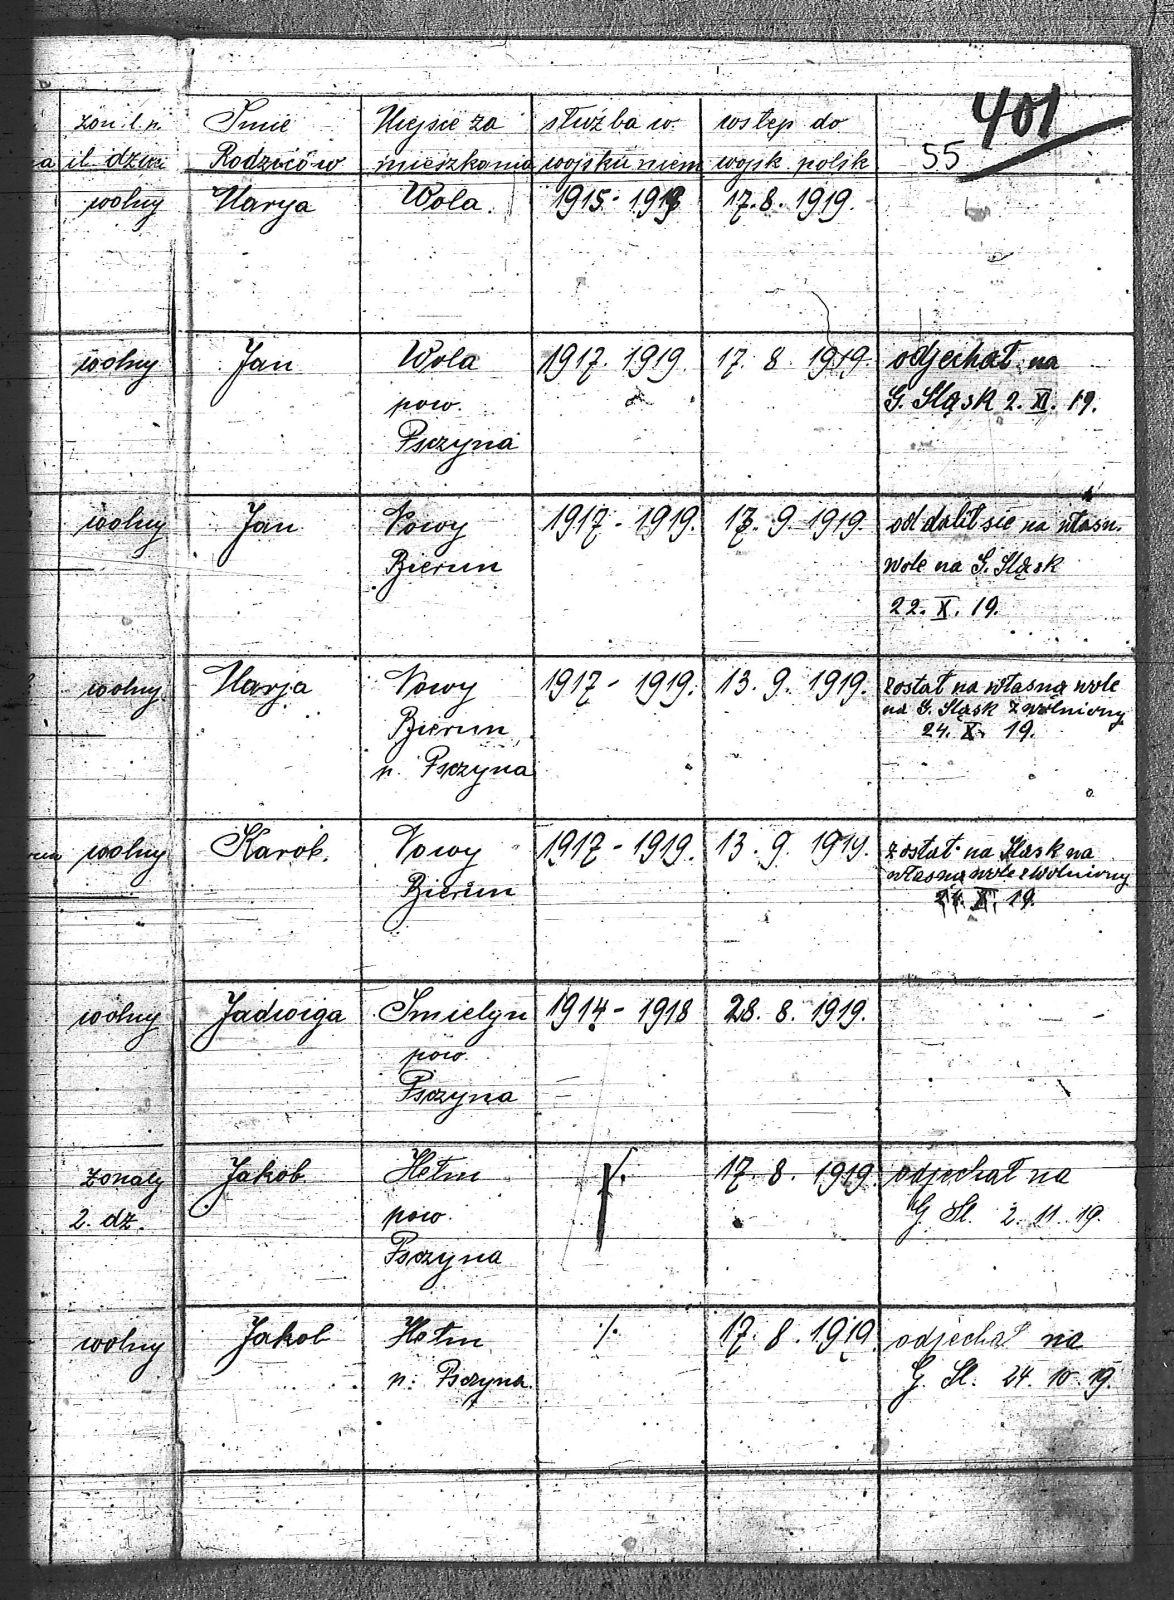 401
55
żon. l. n. Imie Miejsce za służba w. wstęp do
a il. dzieci Rodziców mieszkania wojsku niem wojsk polsk
wolny Marya Wola. 1915 - 1919 17. 8. 1919.
wolny Jan Wola 1917. 1919. 17. 8. 1919. odjechał na
pow. G. Sląsk 2. XI. 19.
Psczyna
wolny Jan Nowy 1917 - 1919. 13. 9. 1919. oddalił sie na własn.
Bierun wole na G. Sląsk
22. X. 19.
wolny Marja Nowy 1917 - 1919. 13. 9. 1919. został na własną wole
Bierun na G. Sląsk zwolniony
n. Psczyna 24. X. 19.
wolny Karol. Nowy 1917 - 1919. 13. 9. 1919. został na Sląsk na
Bierun własną wole zwolniony
X. 19.
wolny Jadwiga Smielyn 1914 - 1918 28. 8. 1919.
pow.
Psczyna
żonaty Jakób Hołm ./. 17. 8. 1919. odjechał na
2. dz. pow. G. Sl. 2. 11. 19.
Psczyna
wolny Jakob Hołm ./. 17. 8. 1919. odjechał na
n. Psczyna. G. Sl. 24. 10. 19.